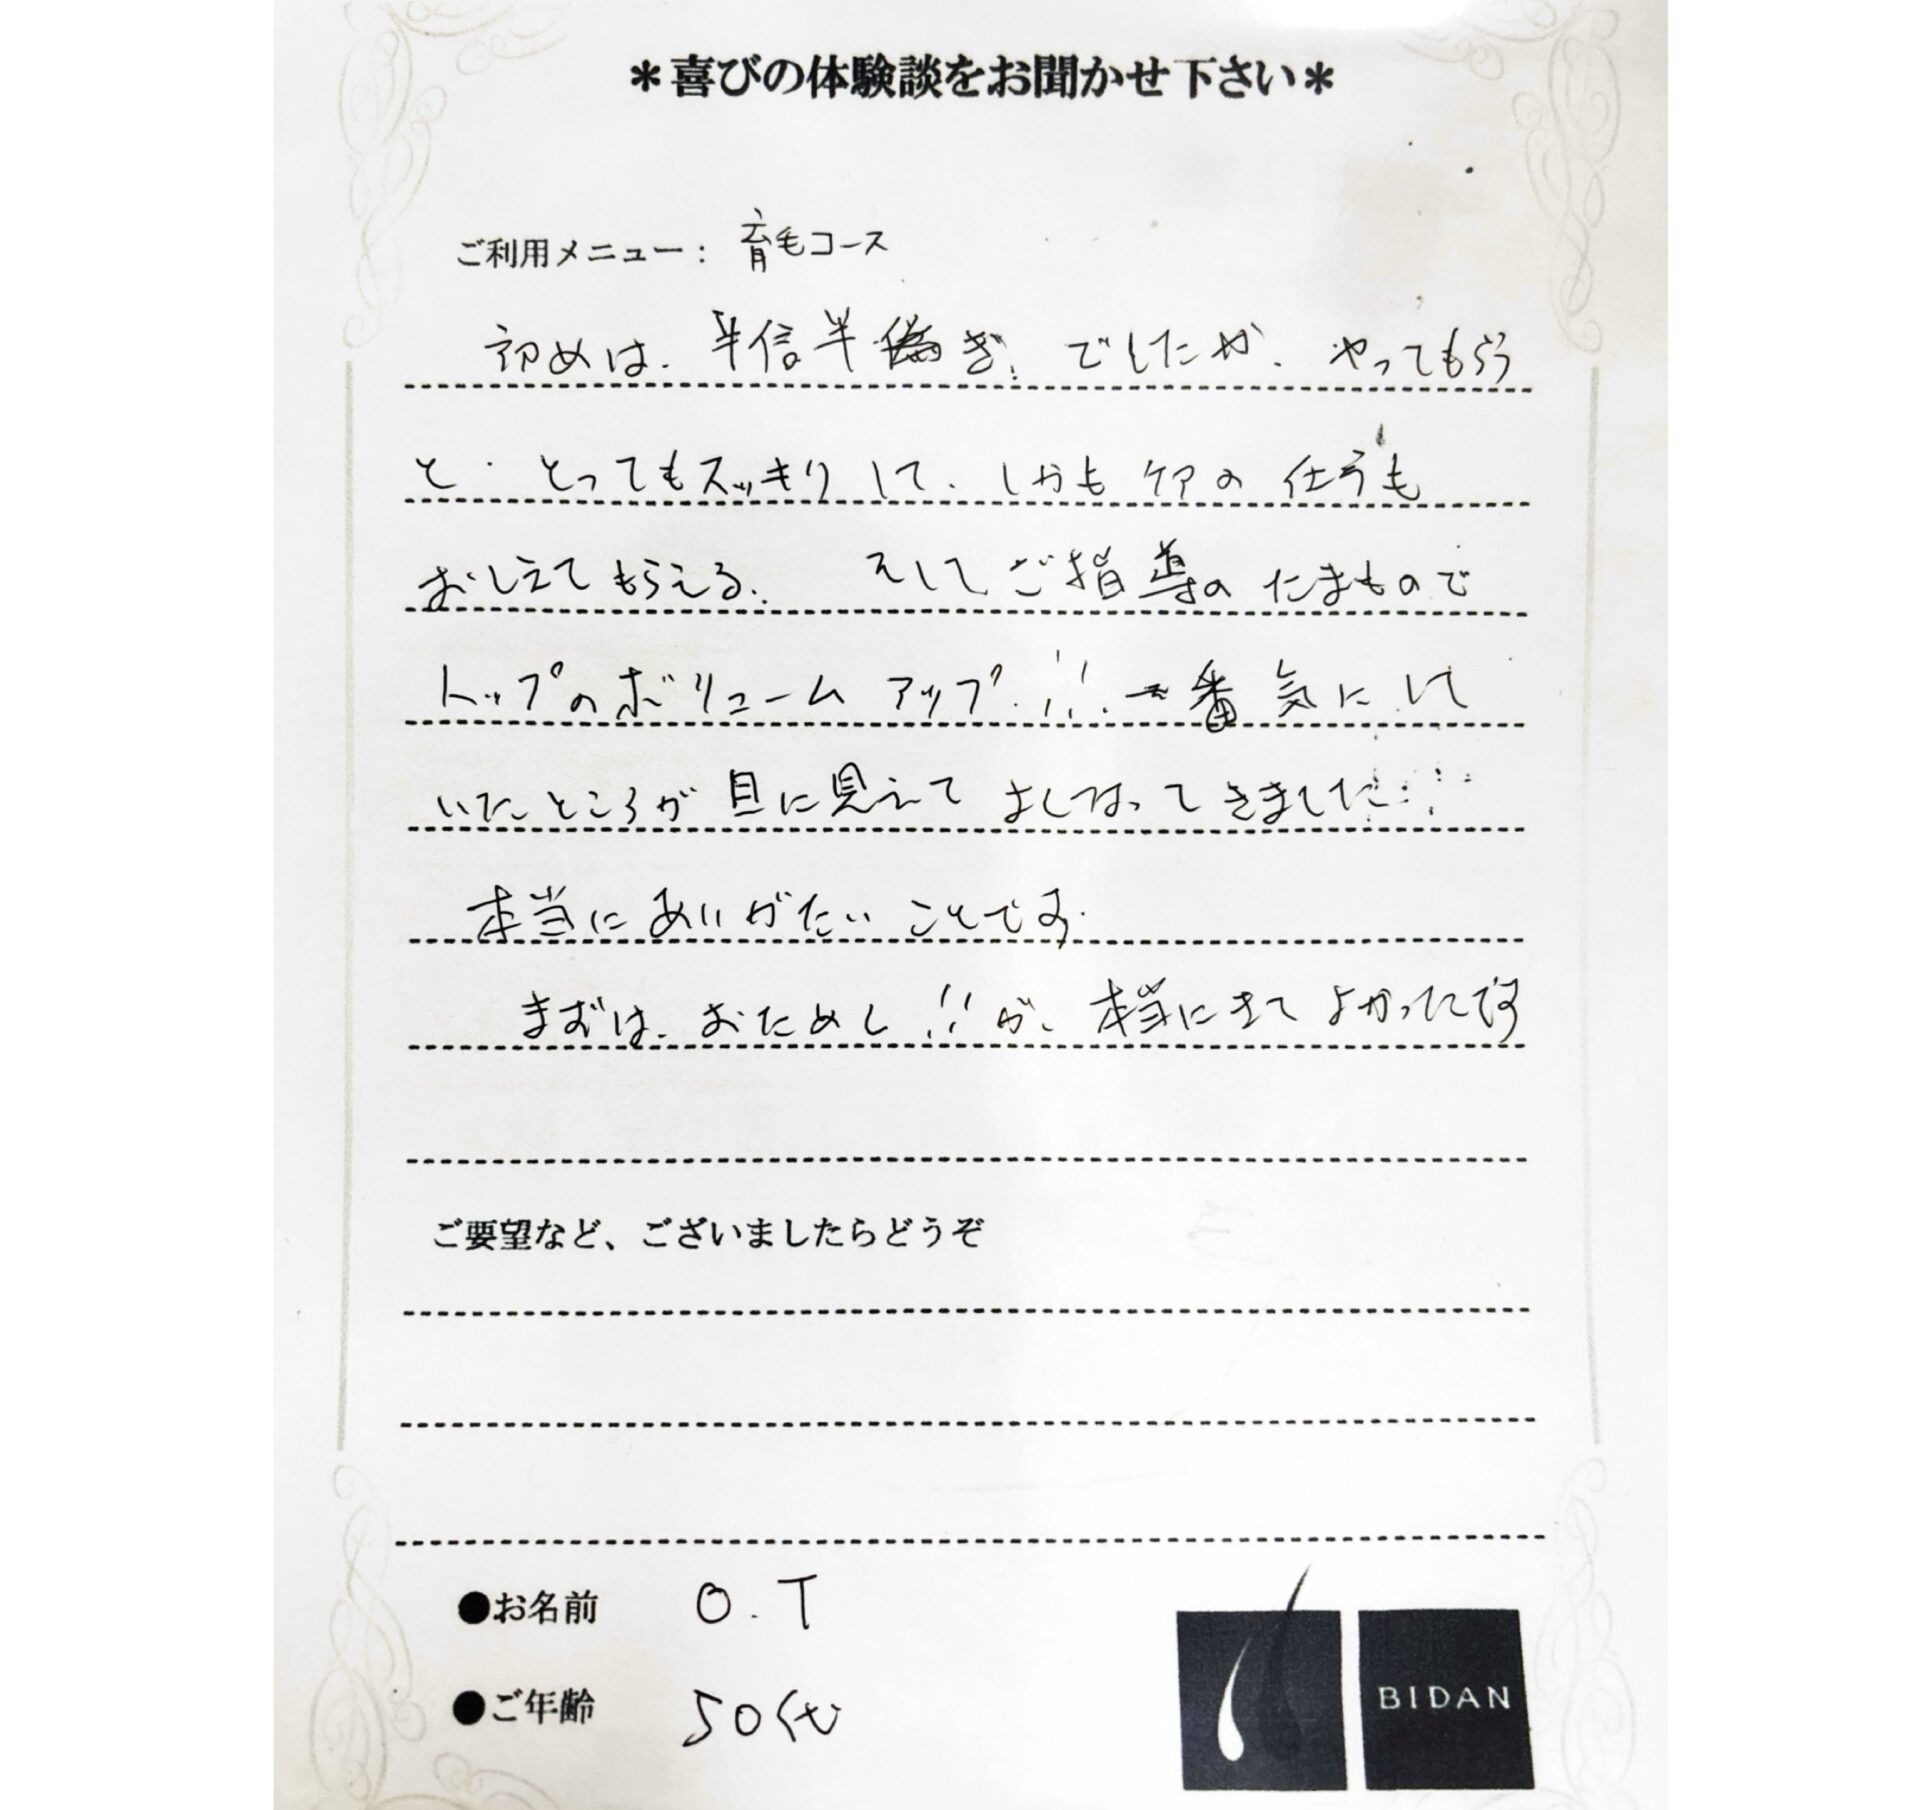 ＊喜びの体験談をお聞かせ下さい＊
ご利用メニュー： 育毛コース
初めは、半信半偽ぎ、でしたが、やってもらう
と、とってもスッキリして、しかもケアの仕方も
おしえてもらえる。 そしてご指導のたまもので
トップのボリュームアップ!!! 一番気にして
いたところが目に見えてましになってきました!!
本当にありがたいことです。
まずは、おためし!!が、本当にきてよかったです
ご要望など、ございましたらどうぞ
●お名前 O.T
●ご年齢 50代
BIDAN